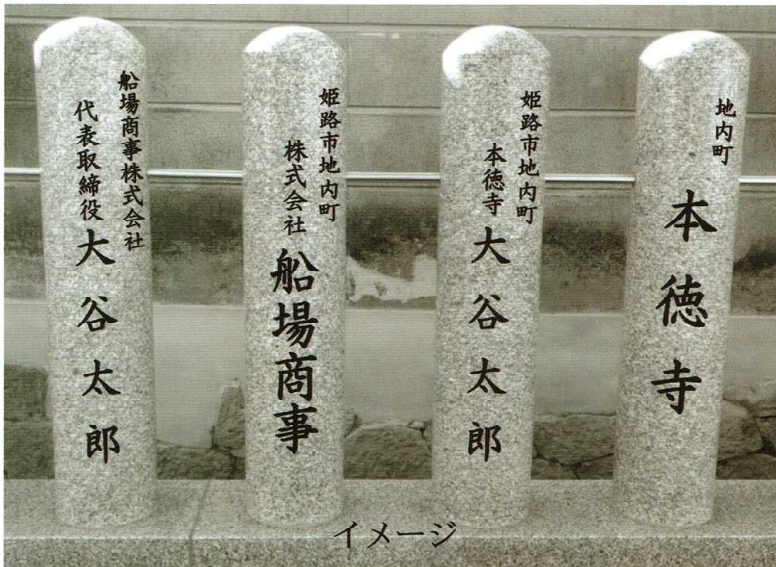 地内町
本徳寺
姫路市地内町
本徳寺 大谷太郎
姫路市地内町
株式会社 船場商事
船場商事株式会社
代表取締役 大谷太郎
イメージ